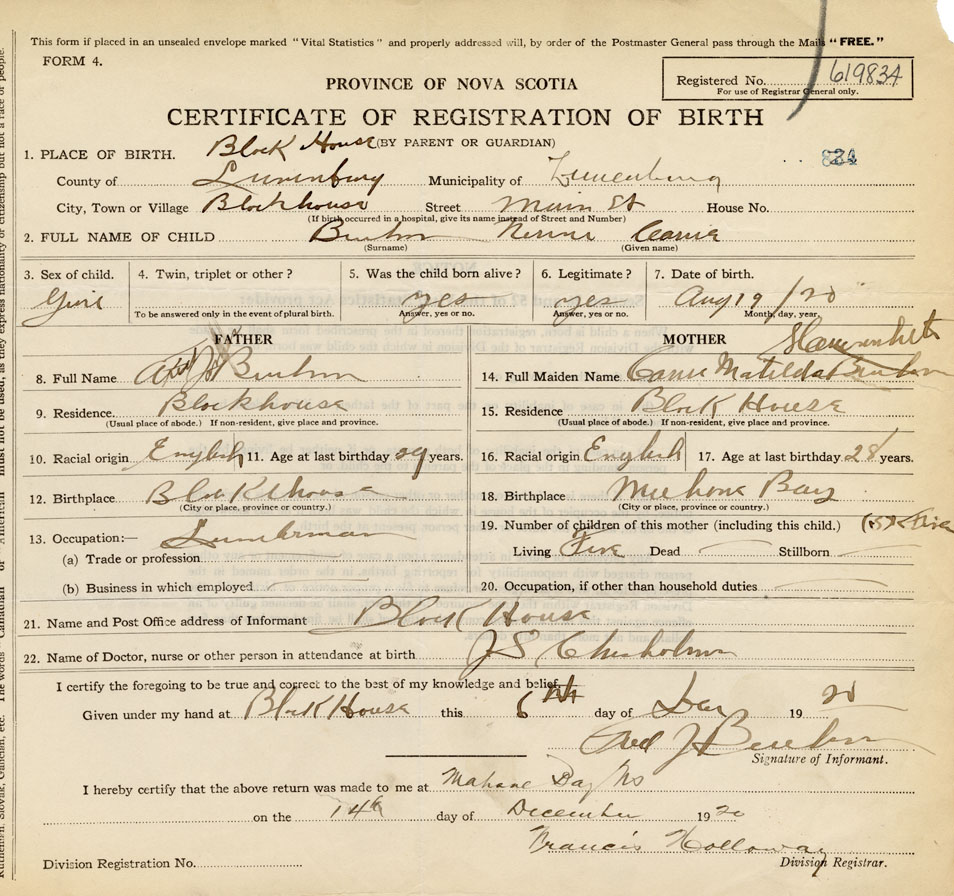 This form if placed in an unsealed envelope marked "Vital Statistics" and properly addressed will, by order of the Postmaster General pass through the Mails "FREE."
FORM 4.
Registered No. 619834
For use of Registrar General only.
PROVINCE OF NOVA SCOTIA
CERTIFICATE OF REGISTRATION OF BIRTH
(BY PARENT OR GUARDIAN)
1. PLACE OF BIRTH. Block House
824
County of Lunenburg Municipality of Lunenburg
City, Town or Village Blockhouse Street Main St House No.
(If birth occurred in a hospital, give its name instead of Street and Number)
2. FULL NAME OF CHILD Carrie
(Surname) (Given name)
3. Sex of child. 4. Twin, triplet or other? 5. Was the child born alive? 6. Legitimate? 7. Date of birth.
Girl yes yes Aug 19 /20
To be answered only in the event of plural birth. Answer, yes or no. Answer, yes or no. Month, day, year.
FATHER MOTHER
8. Full Name J 14. Full Maiden Name Carrie Matilda
9. Residence. Blockhouse 15. Residence Block House
(Usual place of abode.) If non-resident, give place and province. (Usual place of abode.) If non-resident, give place and province.
10. Racial origin English 11. Age at last birthday 29 years. 16. Racial origin English 17. Age at last birthday 28 years.
12. Birthplace Block House 18. Birthplace Mahone Bay
(City or place, province or country.) (City or place, province or country.)
13. Occupation:— Lumberman 19. Number of children of this mother (including this child.) (5) Five
(a) Trade or profession Living Five Dead Stillborn
(b) Business in which employed 20. Occupation, if other than household duties
21. Name and Post Office address of Informant Block House
22. Name of Doctor, nurse or other person in attendance at birth J S Chisholm
I certify the foregoing to be true and correct to the best of my knowledge and belief.
Given under my hand at Block House this 6th day of 1920
J
Signature of Informant.
I hereby certify that the above return was made to me at Mahone Bay NS
on the 14th day of December 1920
Francis Holloway
Division Registration No. Division Registrar.